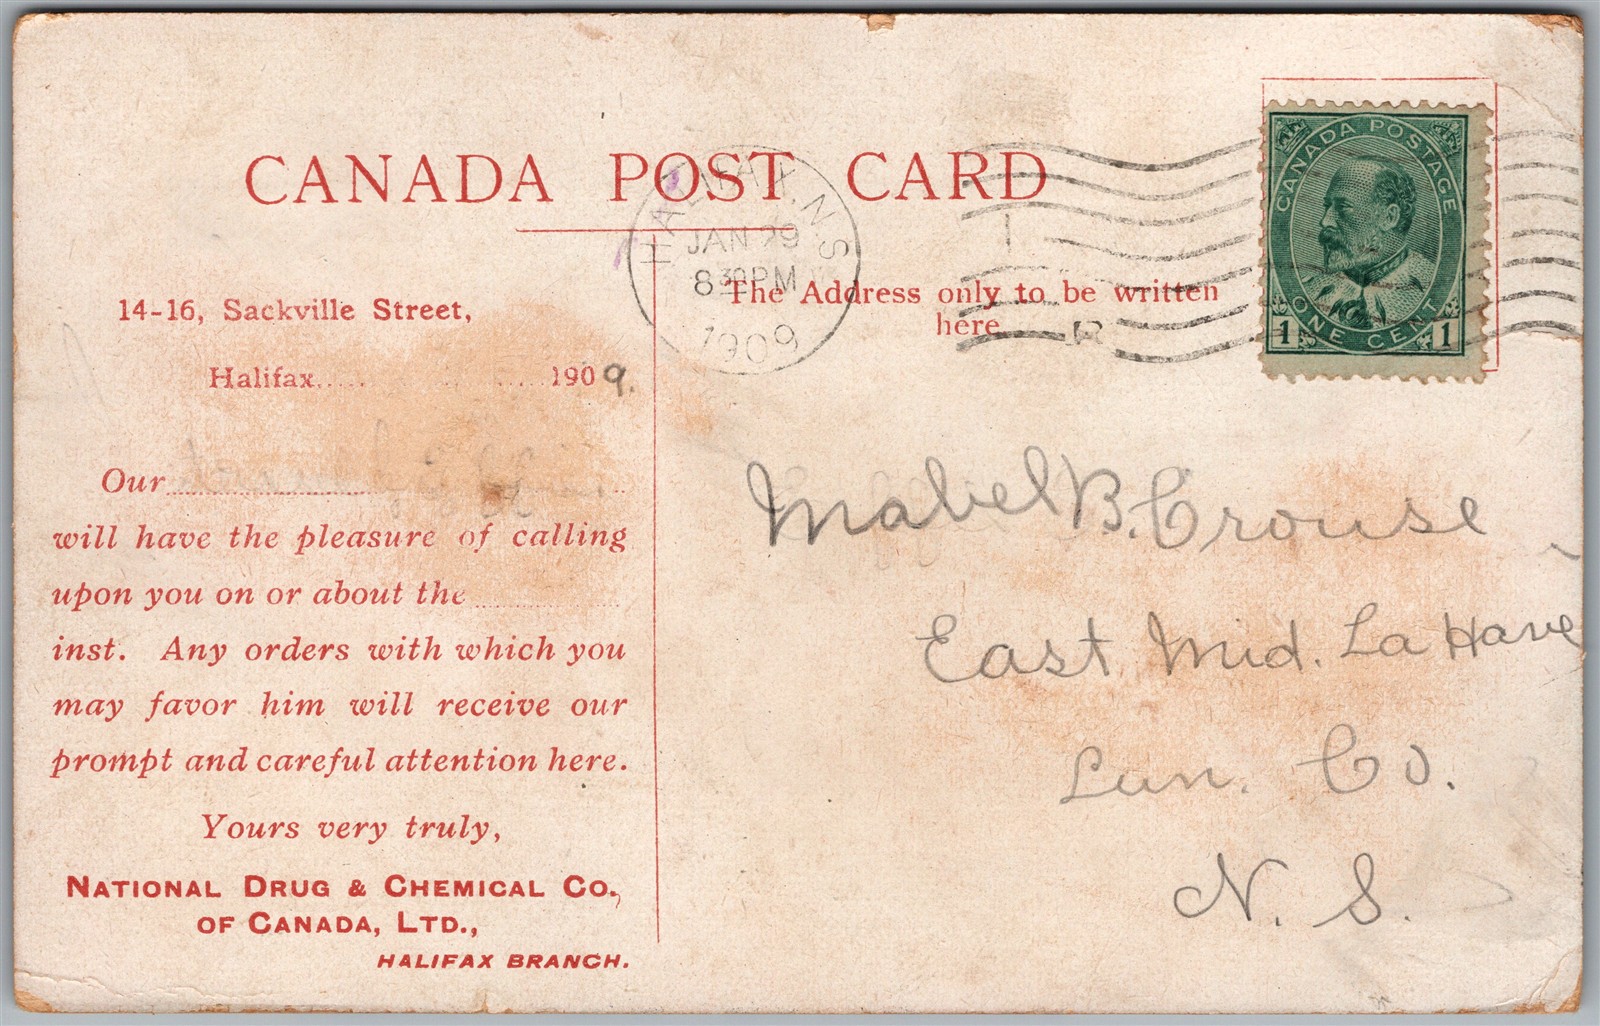 CANADA POST CARD
HALIFAX, N.S.
JAN 29
8 30 PM
1909
CANADA POSTAGE
1 ONE CENT 1
14-16, Sackville Street,
Halifax, 1909.
Our
will have the pleasure of calling
upon you on or about the
inst. Any orders with which you
may favor him will receive our
prompt and careful attention here.
Yours very truly,
NATIONAL DRUG & CHEMICAL CO.,
OF CANADA, LTD.,
HALIFAX BRANCH.
The Address only to be written
here
Mabel B. Crouse
East Mid. La Have
Lun. Co.
N. S.